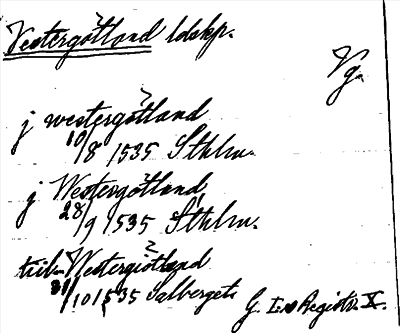 Västergötland ldskp.
Vg.
j westergötland
10/8 1535 Sthlm.
j Westergötland
28/9 1535 Sthlm.
till Westergiötland
31/10 1535 Salberget.
G. I:s Registr. X.